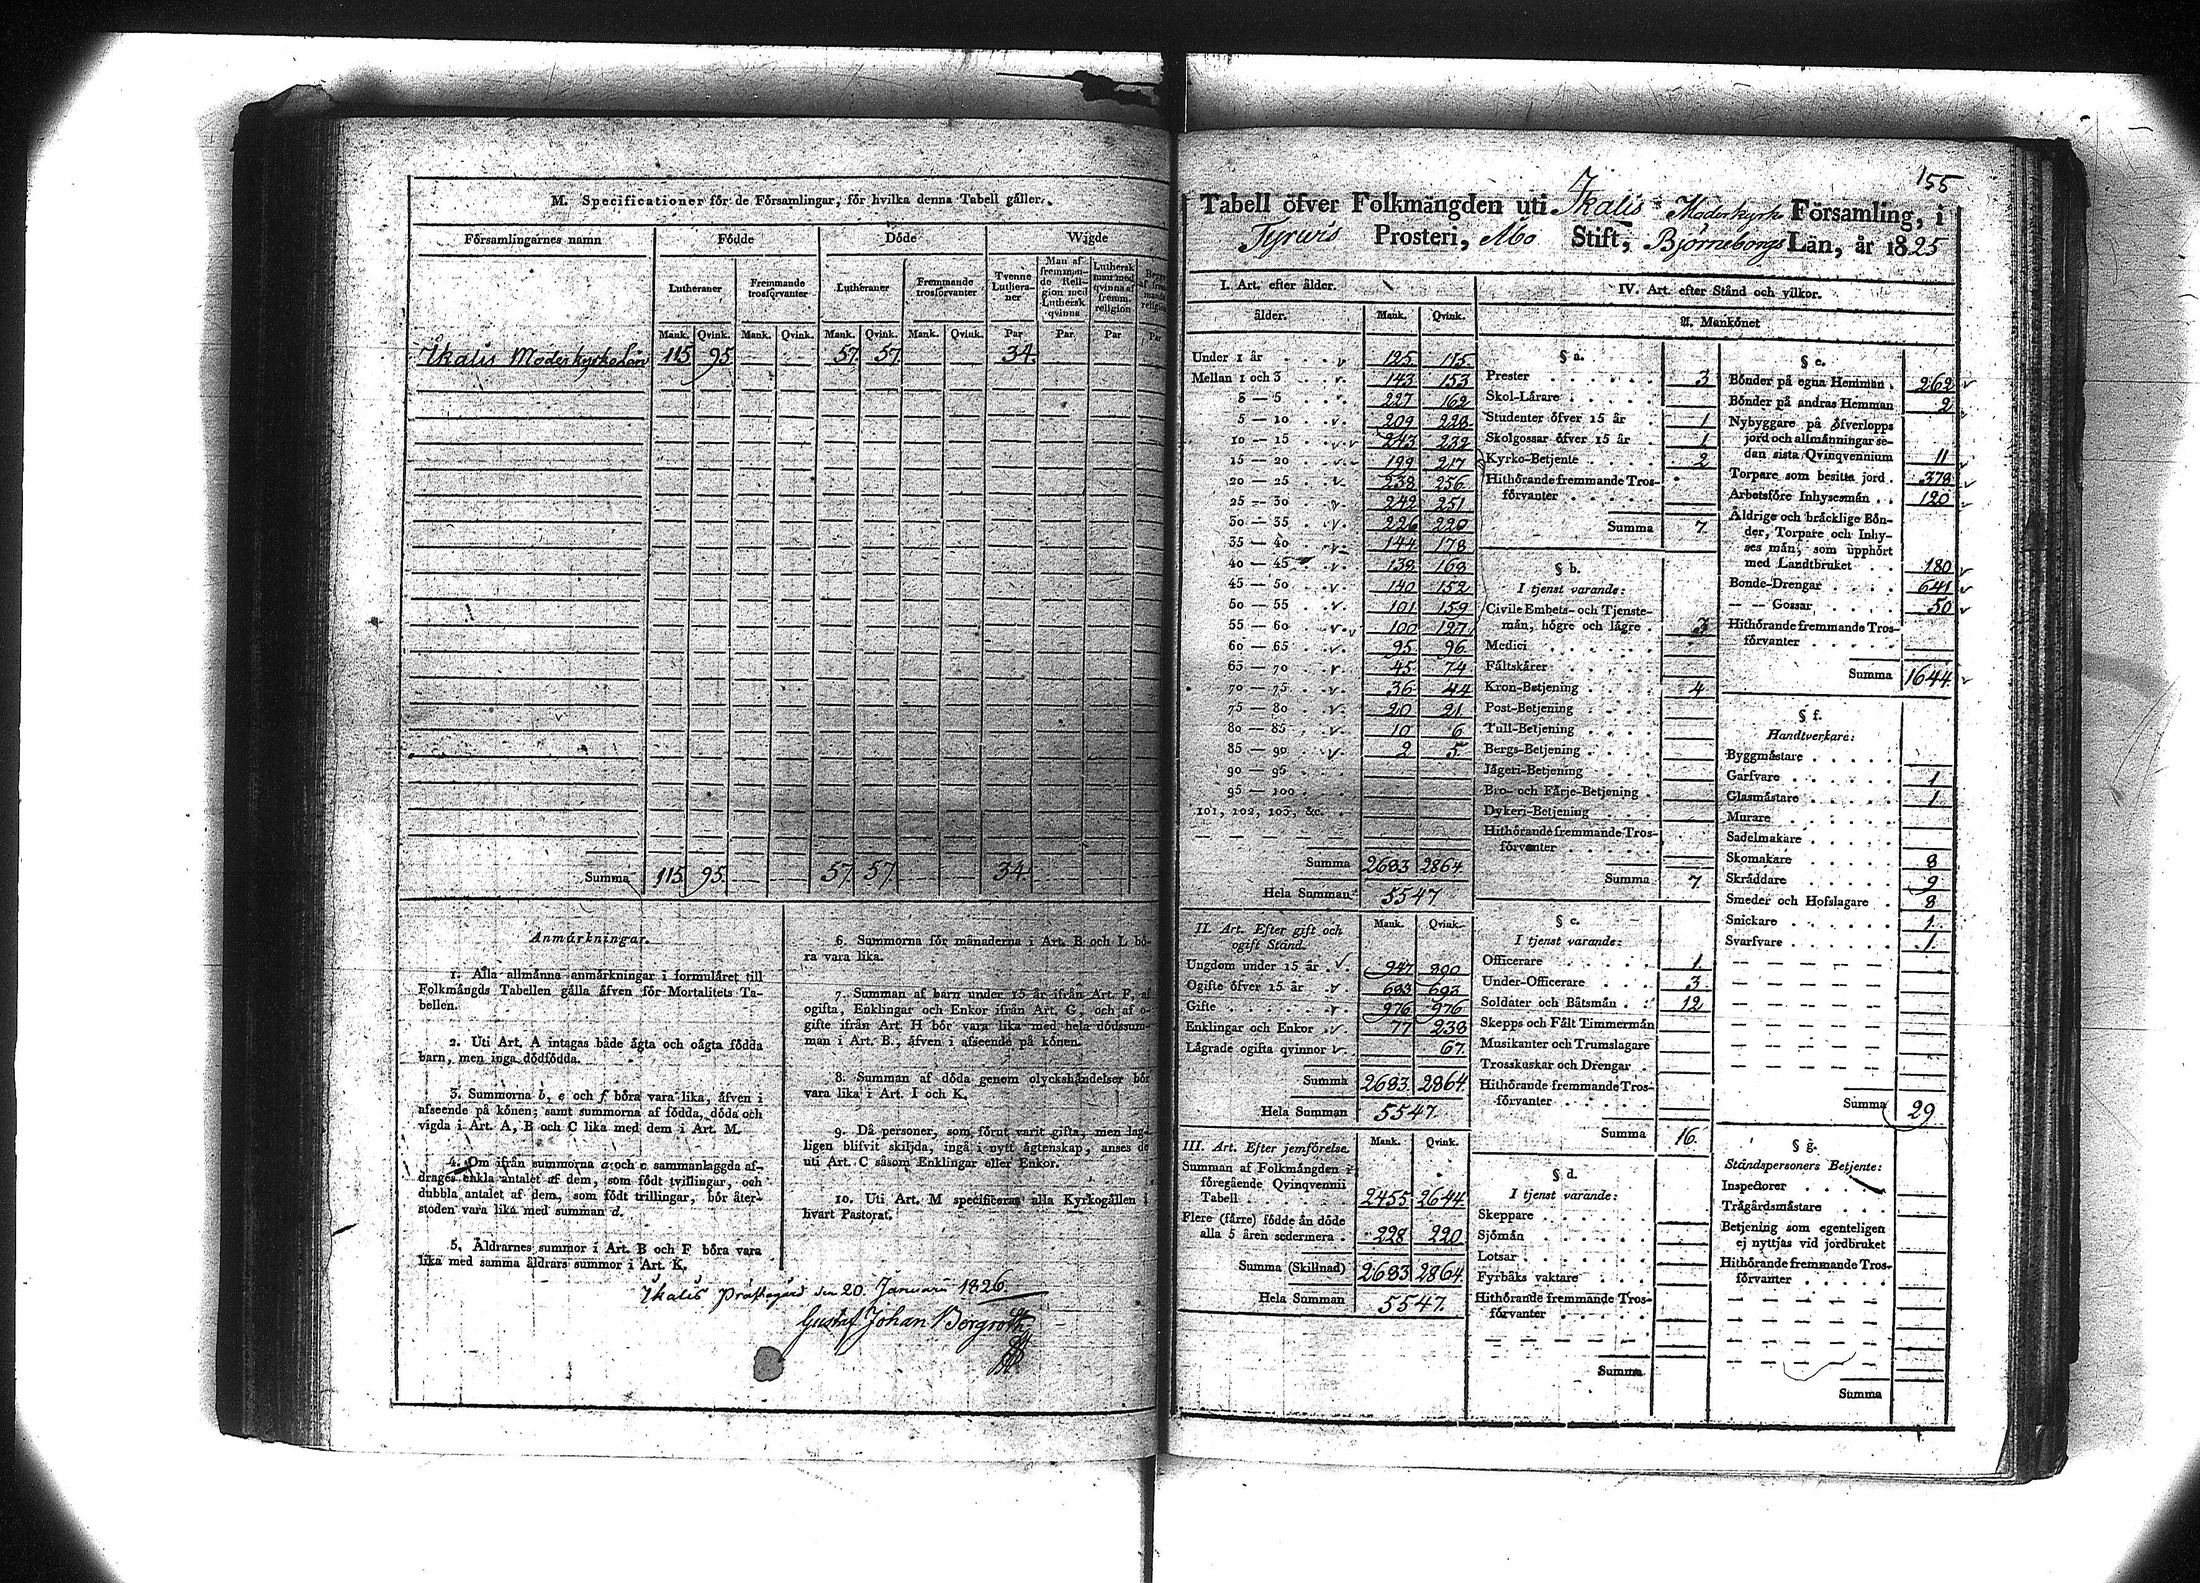 M. Specificationer för de Församlingar, för hvilka denna Tabell gäller.
Församlingarnes namn Födde Döde Wigde
Lutheraner Fremmande trosförvanter Lutheraner Fremmande trosförvanter Tvenne Lutheraner Man af fremmande Religion med Luthersk qvinna Luthersk man med qvinna af fremm. religion
Mank. Qvink. Mank. Qvink. Mank. Qvink. Mank. Qvink. Par Par. Par Par
Ikalis Moderkyrkolän 115 95 — — 57 57 — — 34 — —
Summa 115 95 — — 57 57 — — 34
Anmärkningar.
1. Alla allmänna anmärkningar i formuläret till
Folkmängds Tabellen gälla äfven för Mortalitets Ta-
bellen.
2. Uti Art. A intagas både ägta och oägta födda
barn, men inga dödfödda.
3. Summorna b, e och f böra vara lika, äfven i
afseende på könen; samt summorna af födda, döda och
vigda i Art. A, B och C lika med dem i Art. M.
4. Om ifrån summorna a och c sammanlaggda af-
drages enkla antalet af dem, som födt tvillingar, och
dubbla antalet af dem, som födt trillingar, bör åter-
stoden vara lika med summan d.
5. Åldrarnes summor i Art. B och F böra vara
lika med samma åldrars summor i Art. K.
6. Summorna för månaderna i Art. B och L bö-
ra vara lika.
7. Summan af barn under 15 år ifrån Art. F, af
ogifta, Enklingar och Enkor ifrån Art. G, och af o-
gifte ifrån Art. H bör vara lika med hela dödssum-
man i Art. B., äfven i afseende på könen.
8. Summan af döda genom olyckshändelser bör
vara lika i Art. I och K.
9. Då personer, som förut varit gifta, men lag-
ligen blifvit skiljda, ingå i nytt ägtenskap, anses de
uti Art. C såsom Enklingar eller Enkor.
10. Uti Art. M specificeras alla Kyrkogällen i
hvart Pastorat.
Ikalis Prästegård den 20 Januarii 1826
Gustaf Johan Bergroth
155
Tabell öfver Folkmängden uti Ikalis Moderkyrk Församling, i
Tyrwis Prosteri, Åbo Stift, Björneborgs Län, år 1825
I. Art. efter ålder.
ålder. Mank. Qvink.
Under 1 år 125 115
Mellan 1 och 3 143 153
3 — 5 227 162
5 — 10 209 228
10 — 15 243 232
15 — 20 199 217
20 — 25 238 256
25 — 30 242 251
30 — 35 226 220
35 — 40 144 178
40 — 45 138 168
45 — 50 140 152
50 — 55 101 159
55 — 60 100 127
60 — 65 95 96
65 — 70 45 74
70 — 75 36 44
75 — 80 20 21
80 — 85 10 6
85 — 90 2 5
90 — 95
95 — 100
101, 102, 103, &c.
Summa 2683 2864
Hela Summan 5547
II. Art. Efter gift och ogift Stånd. Mank. Qvink.
Ungdom under 15 år 947 890
Ogifte öfver 15 år 683 693
Gifte 976 976
Enklingar och Enkor 77 238
Lägrade ogifta qvinnor 67
Summa 2683 2864
Hela Summan 5547
III. Art. Efter jemförelse. Mank. Qvink.
Summan af Folkmängden i
föregående Qvinqvennii
Tabell 2455 2644
Flere (färre) födde än döde
alla 5 åren sedermera 228 220
Summa (Skillnad) 2683 2864
Hela Summan 5547
IV. Art. efter Stånd och vilkor.
A. Mankönet
§ a.
Prester 3
Skol-Lärare
Studenter öfver 15 år 1
Skolgossar öfver 15 år 1
Kyrko-Betjente 2
Hithörande fremmande Tros-
förvanter
Summa 7
§ b.
I tjenst varande:
Civile Embets- och Tjenste-
män, högre och lägre 3
Medici
Fältskärer
Kron-Betjening 4
Post-Betjening
Tull-Betjening
Bergs-Betjening
Jägeri-Betjening
Bro- och Färje-Betjening
Dykeri-Betjening
Hithörande fremmande Tros-
förvanter
Summa 7
§ c.
I tjenst varande:
Officerare 1
Under-Officerare 3
Soldater och Båtsmän 12
Skepps och Fält Timmermän
Musikanter och Trumslagare
Trosskuskar och Drengar
Hithörande fremmande Tros-
förvanter
Summa 16
§ d.
I tjenst varande:
Skeppare
Sjömän
Lotsar
Fyrbåks vaktare
Hithörande fremmande Tros-
förvanter
Summa
§ e.
Bönder på egna Hemman 262
Bönder på andras Hemman 2
Nybyggare på öfverlopps
jord och allmänningar se-
dan sista Qvinqvennium 11
Torpare som besitta jord 378
Arbetsföre Inhysesmän 120
Äldrige och bräcklige Bön-
der, Torpare och Inhy-
ses män, som upphört
med Landtbruket 180
Bonde-Drengar 641
— — Gossar 50
Hithörande fremmande Tros-
förvanter
Summa 1644
§ f.
Handtverkare:
Byggmästare
Garfvare 1
Glasmästare 1
Murare
Sadelmakare
Skomakare 8
Skräddare 9
Smeder och Hofslagare 8
Snickare 1
Svarfvare 1
Summa 29
§ g.
Ståndspersoners Betjente:
Inspector
Trägårdsmästare
Betjening som egenteligen
ej nyttjas vid jordbruket
Hithörande fremmande Tros-
förvanter
Summa